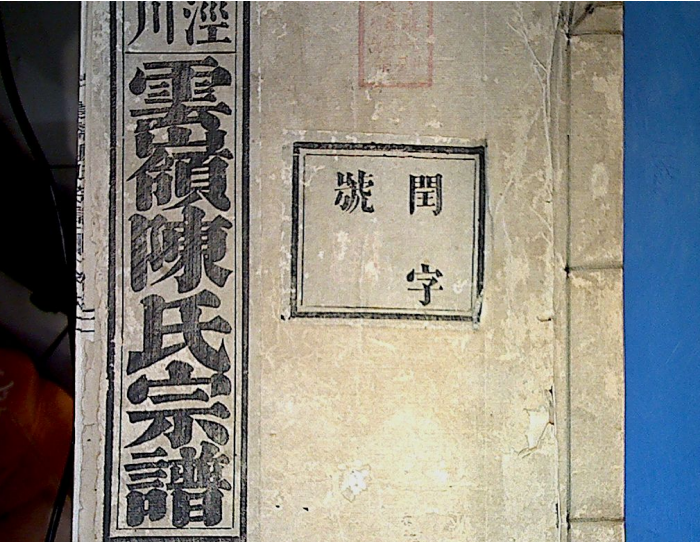 涇川
雲嶺陳氏宗譜
閏字
號